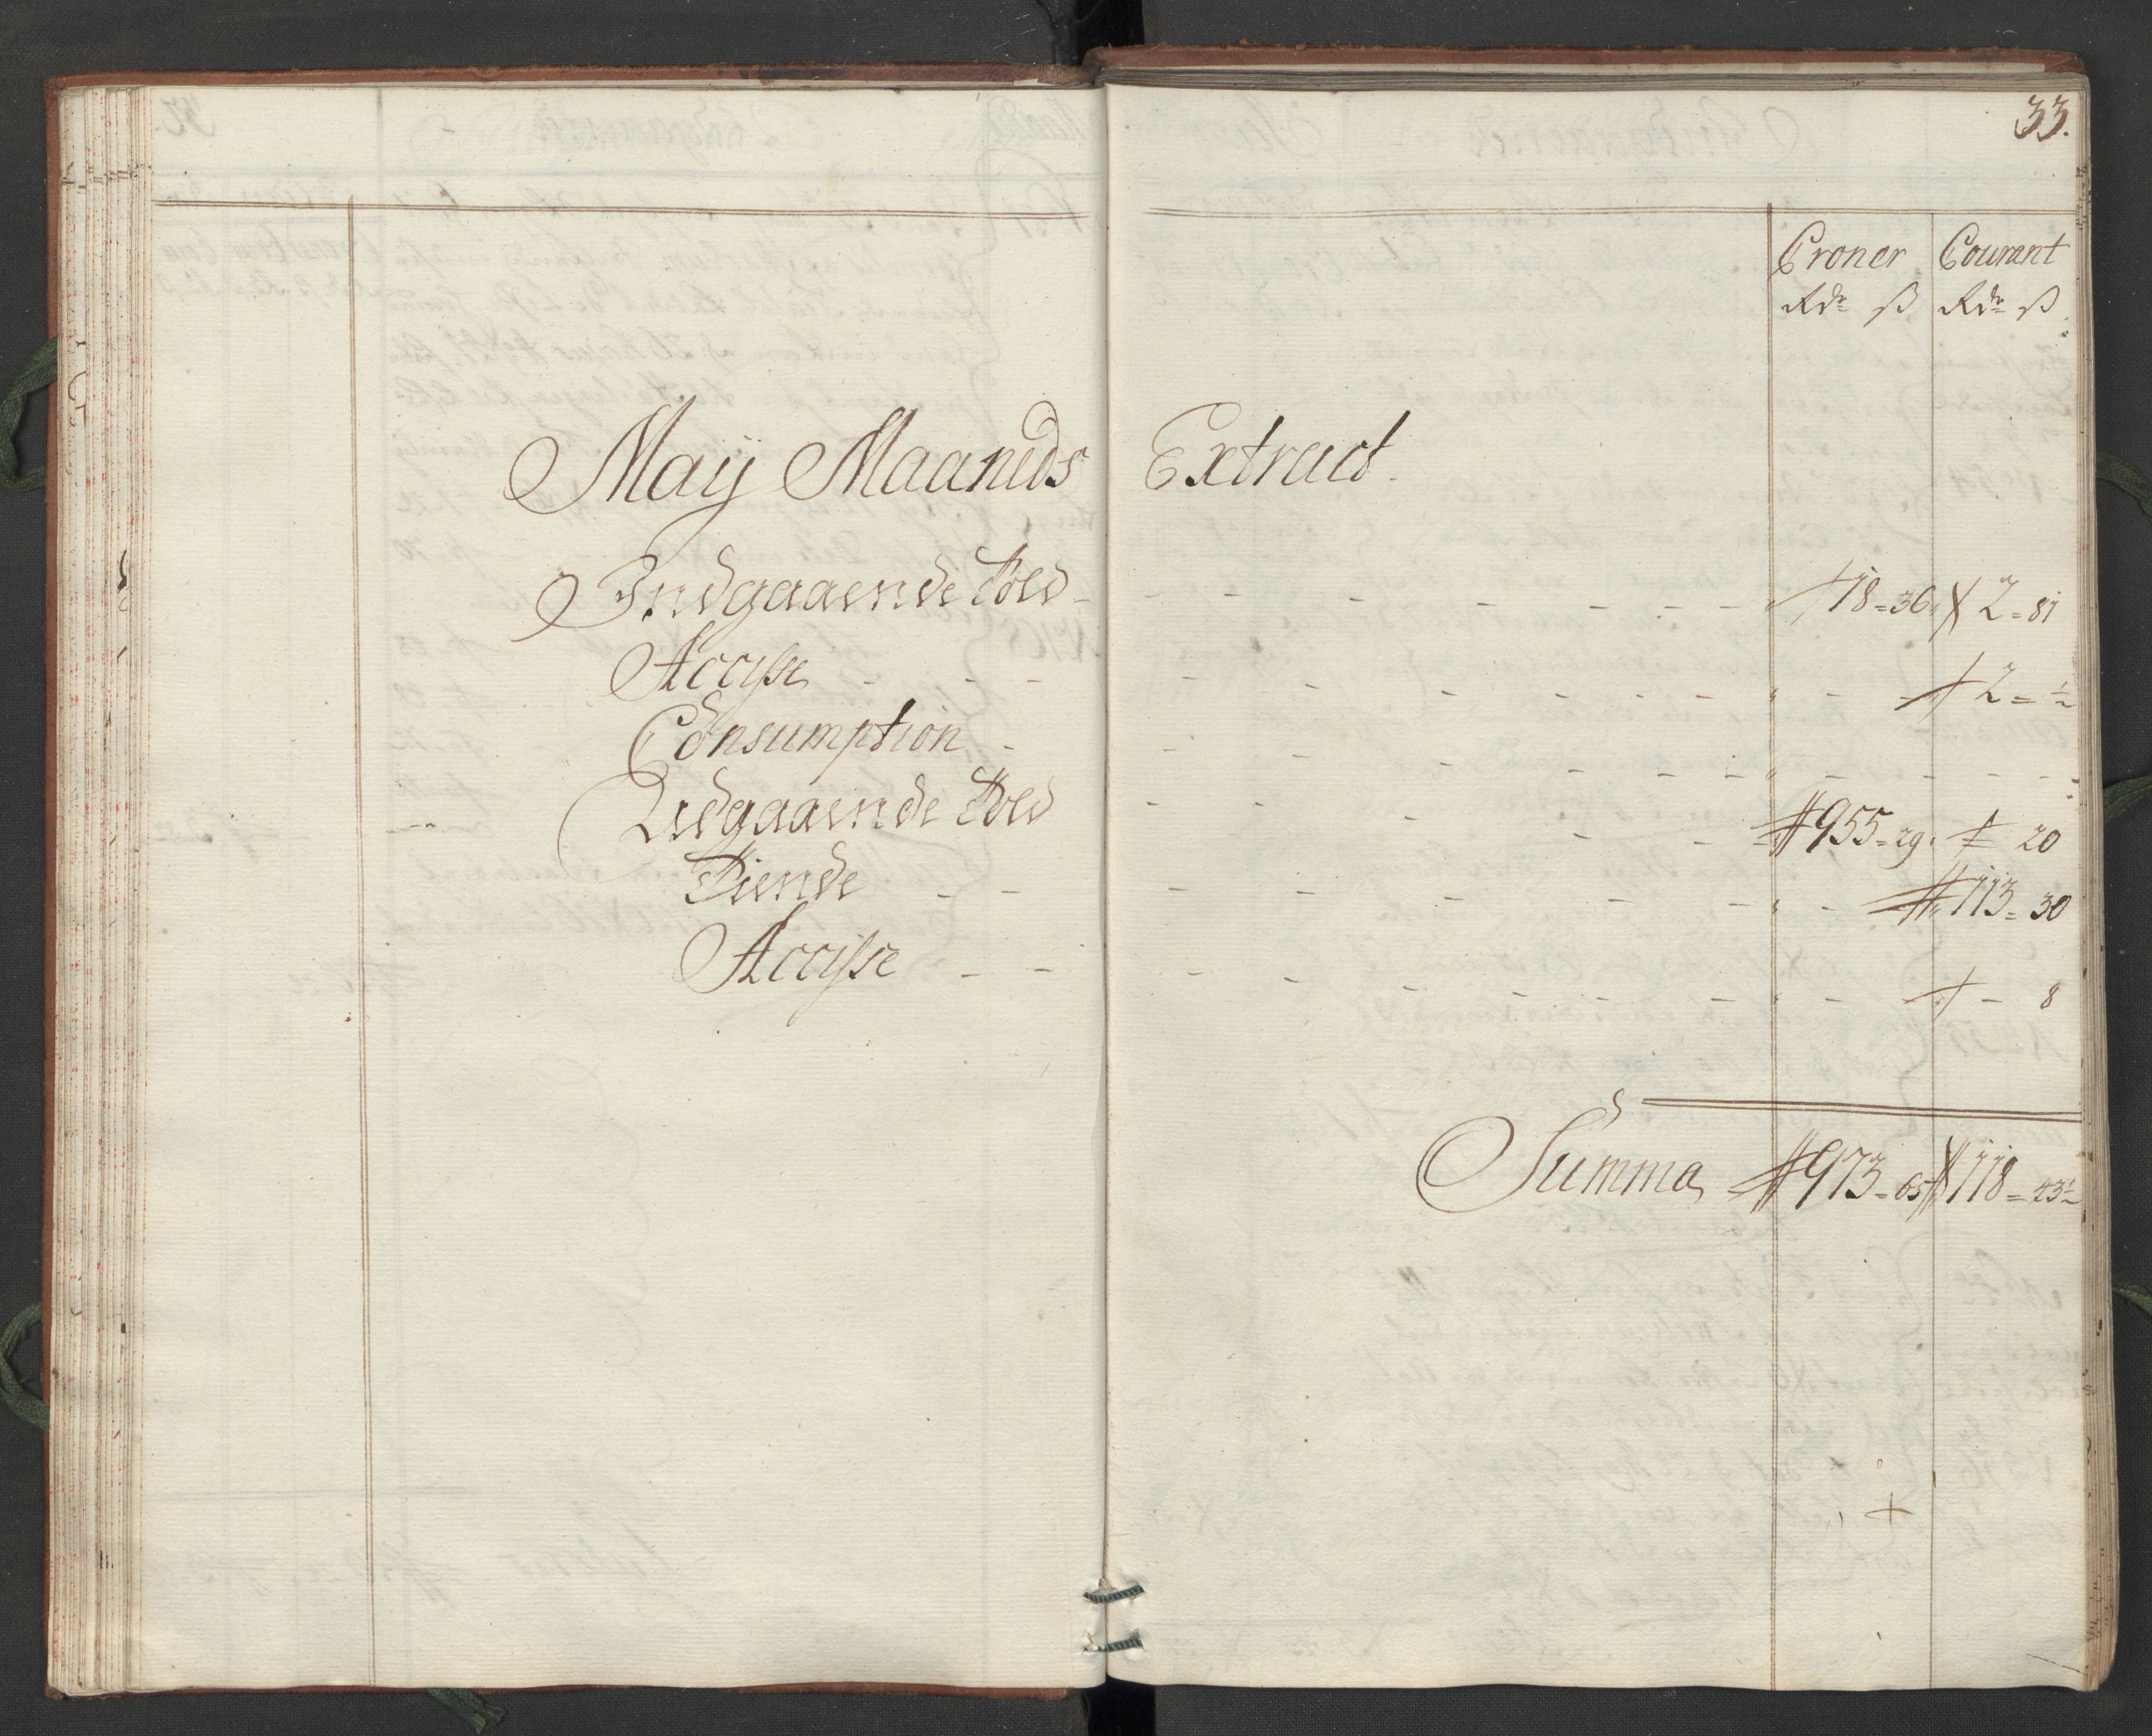 33.
Croner Courant
Rdr ß Rdr ß
Maij Maaneds Extract.
Indgaaende Told - - - - - - - - 18 = 36 2 = 81
Accise - - - - - - - - - - - 2 = ½
Consumption - - - - - - - - - - -
Udgaaende Told - - - - - 955 = 29. 20
Tiende - - - - - - - - 113 = 30
Accise - - - - - - - - - - - 8
Summa 973 = 65 118 = 43½